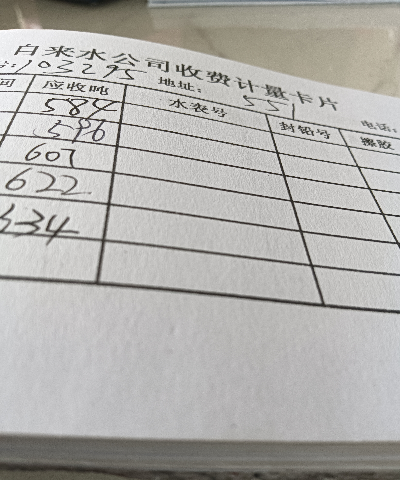 自来水公司收费计量卡片
:103295 地址: 551 电话:
间 应收吨 水表号 封铅号
584
596
607
622
634